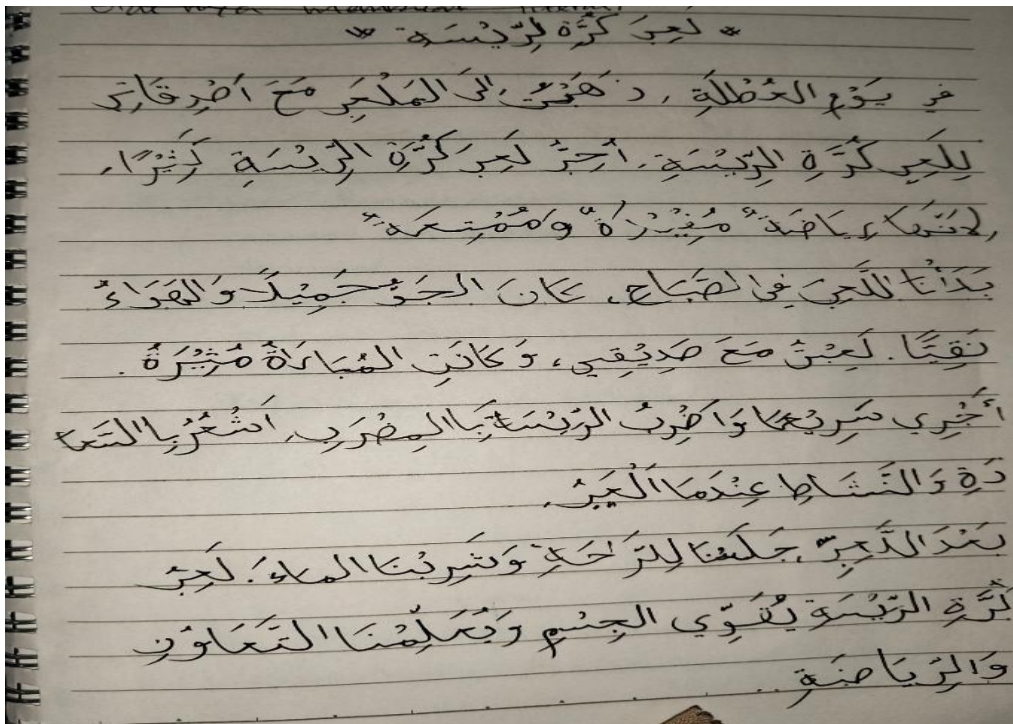 * لَعِبَ كُرَّة لرِّيْسَة *
في يَوْمِ العُطْلَةِ , ذَهَبْتُ إلَى المَلْعَبِ مَعَ أَصْدِقَائِي
لِلَعِبِ كُرَّةِ الرِّيْسَةِ. أُحِبُّ لَعِبَ كُرَّةِ الرِّيْسَةِ كَثِيْرًا.
لِأَنَّهَا رِيَاضَةٌ مُفِيْدَةٌ وَمُمْتِعَةٌ
بَدَأْنَا اللَّعِبَ فِي الصَّبَاحِ، كَانَ الجَوُّ جَمِيْلً وَالهَوَاءُ
نَقِيًّا. لَعِبْتُ مَعَ صَدِيْقِي، وَكَانَتِ المُبَارَاةُ مُثِيْرَةً.
أَجْرِي سَرِيْعًا وَاَضْرِبُ الرِّيْسَة بِاالمِضْرَبِ. اَشْعُرُ بِاالسَّعَا
دَةِ وَالنَّشَاطِ عِنْدَمَا اَلْعَبُ.
بَعْدَ اللَّعِبِّ، جَلَسْنَا لِلرَّاحَةِ وَشَرِبْنَا المَاءَ. لَعِبُ
كُرَّةِ الرِّيْسَةِ يُقَوِّي الجِسْمِ وَيُعَلِّمُنَا التَّعَاوُنِ
وَالرِّيَاضَةِ..